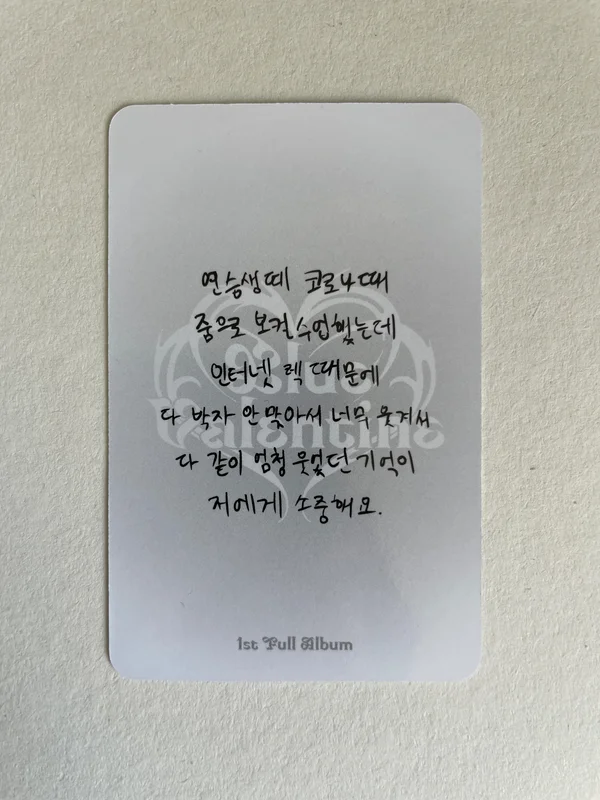 연습생때 코로나때
줌으로 보컬수업했는데
인터넷 렉 때문에
다 박자 안맞아서 너무 웃겨서
다 같이 엄청 웃었던 기억이
저에게 소중해요.
Blue
Valentine
1st Full Album